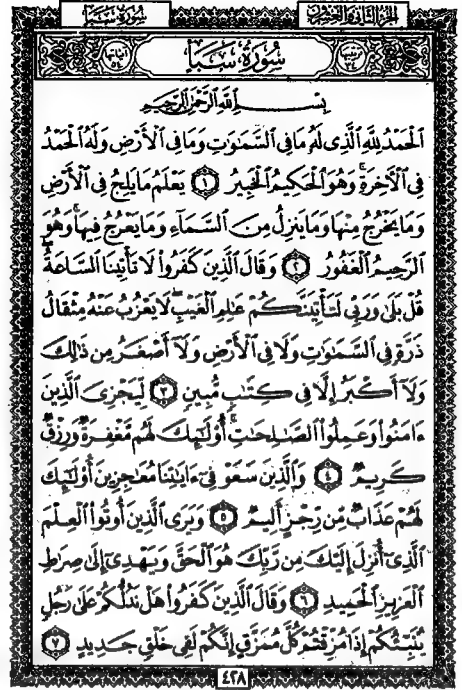 الجزء الثاني والعشرون
سورة سبأ
سُورَةُ سَبَإٍ
بِسْمِ ٱللَّهِ ٱلرَّحْمَٰنِ ٱلرَّحِيمِ
ٱلْحَمْدُ لِلَّهِ ٱلَّذِى لَهُۥ مَا فِى ٱلسَّمَٰوَٰتِ وَمَا فِى ٱلْأَرْضِ وَلَهُ ٱلْحَمْدُ
فِى ٱلْءَاخِرَةِ ۚ وَهُوَ ٱلْحَكِيمُ ٱلْخَبِيرُ ١ يَعْلَمُ مَا يَلِجُ فِى ٱلْأَرْضِ
وَمَا يَخْرُجُ مِنْهَا وَمَا يَنزِلُ مِنَ ٱلسَّمَآءِ وَمَا يَعْرُجُ فِيهَا ۚ وَهُوَ
ٱلرَّحِيمُ ٱلْغَفُورُ ٢ وَقَالَ ٱلَّذِينَ كَفَرُوا۟ لَا تَأْتِينَا ٱلسَّاعَةُ ۖ
قُلْ بَلَىٰ وَرَبِّى لَتَأْتِيَنَّكُمْ عَٰلِمِ ٱلْغَيْبِ ۖ لَا يَعْزُبُ عَنْهُ مِثْقَالُ
ذَرَّةٍ فِى ٱلسَّمَٰوَٰتِ وَلَا فِى ٱلْأَرْضِ وَلَآ أَصْغَرُ مِن ذَٰلِكَ
وَلَآ أَكْبَرُ إِلَّا فِى كِتَٰبٍ مُّبِينٍ ٣ لِّيَجْزِىَ ٱلَّذِينَ
ءَامَنُوا۟ وَعَمِلُوا۟ ٱلصَّٰلِحَٰتِ ۚ أُو۟لَٰٓئِكَ لَهُم مَّغْفِرَةٌ وَرِزْقٌ
كَرِيمٌ ٤ وَٱلَّذِينَ سَعَوْ فِىٓ ءَايَٰتِنَا مُعَٰجِزِينَ أُو۟لَٰٓئِكَ
لَهُمْ عَذَابٌ مِّن رِّجْزٍ أَلِيمٌ ٥ وَيَرَى ٱلَّذِينَ أُوتُوا۟ ٱلْعِلْمَ
ٱلَّذِىٓ أُنزِلَ إِلَيْكَ مِن رَّبِّكَ هُوَ ٱلْحَقَّ وَيَهْدِىٓ إِلَىٰ صِرَٰطِ
ٱلْعَزِيزِ ٱلْحَمِيدِ ٦ وَقَالَ ٱلَّذِينَ كَفَرُوا۟ هَلْ نَدُلُّكُمْ عَلَىٰ رَجُلٍ
يُنَبِّئُكُمْ إِذَا مُزِّقْتُمْ كُلَّ مُمَزَّقٍ إِنَّكُمْ لَفِى خَلْقٍ جَدِيدٍ ٧
٤٢٨